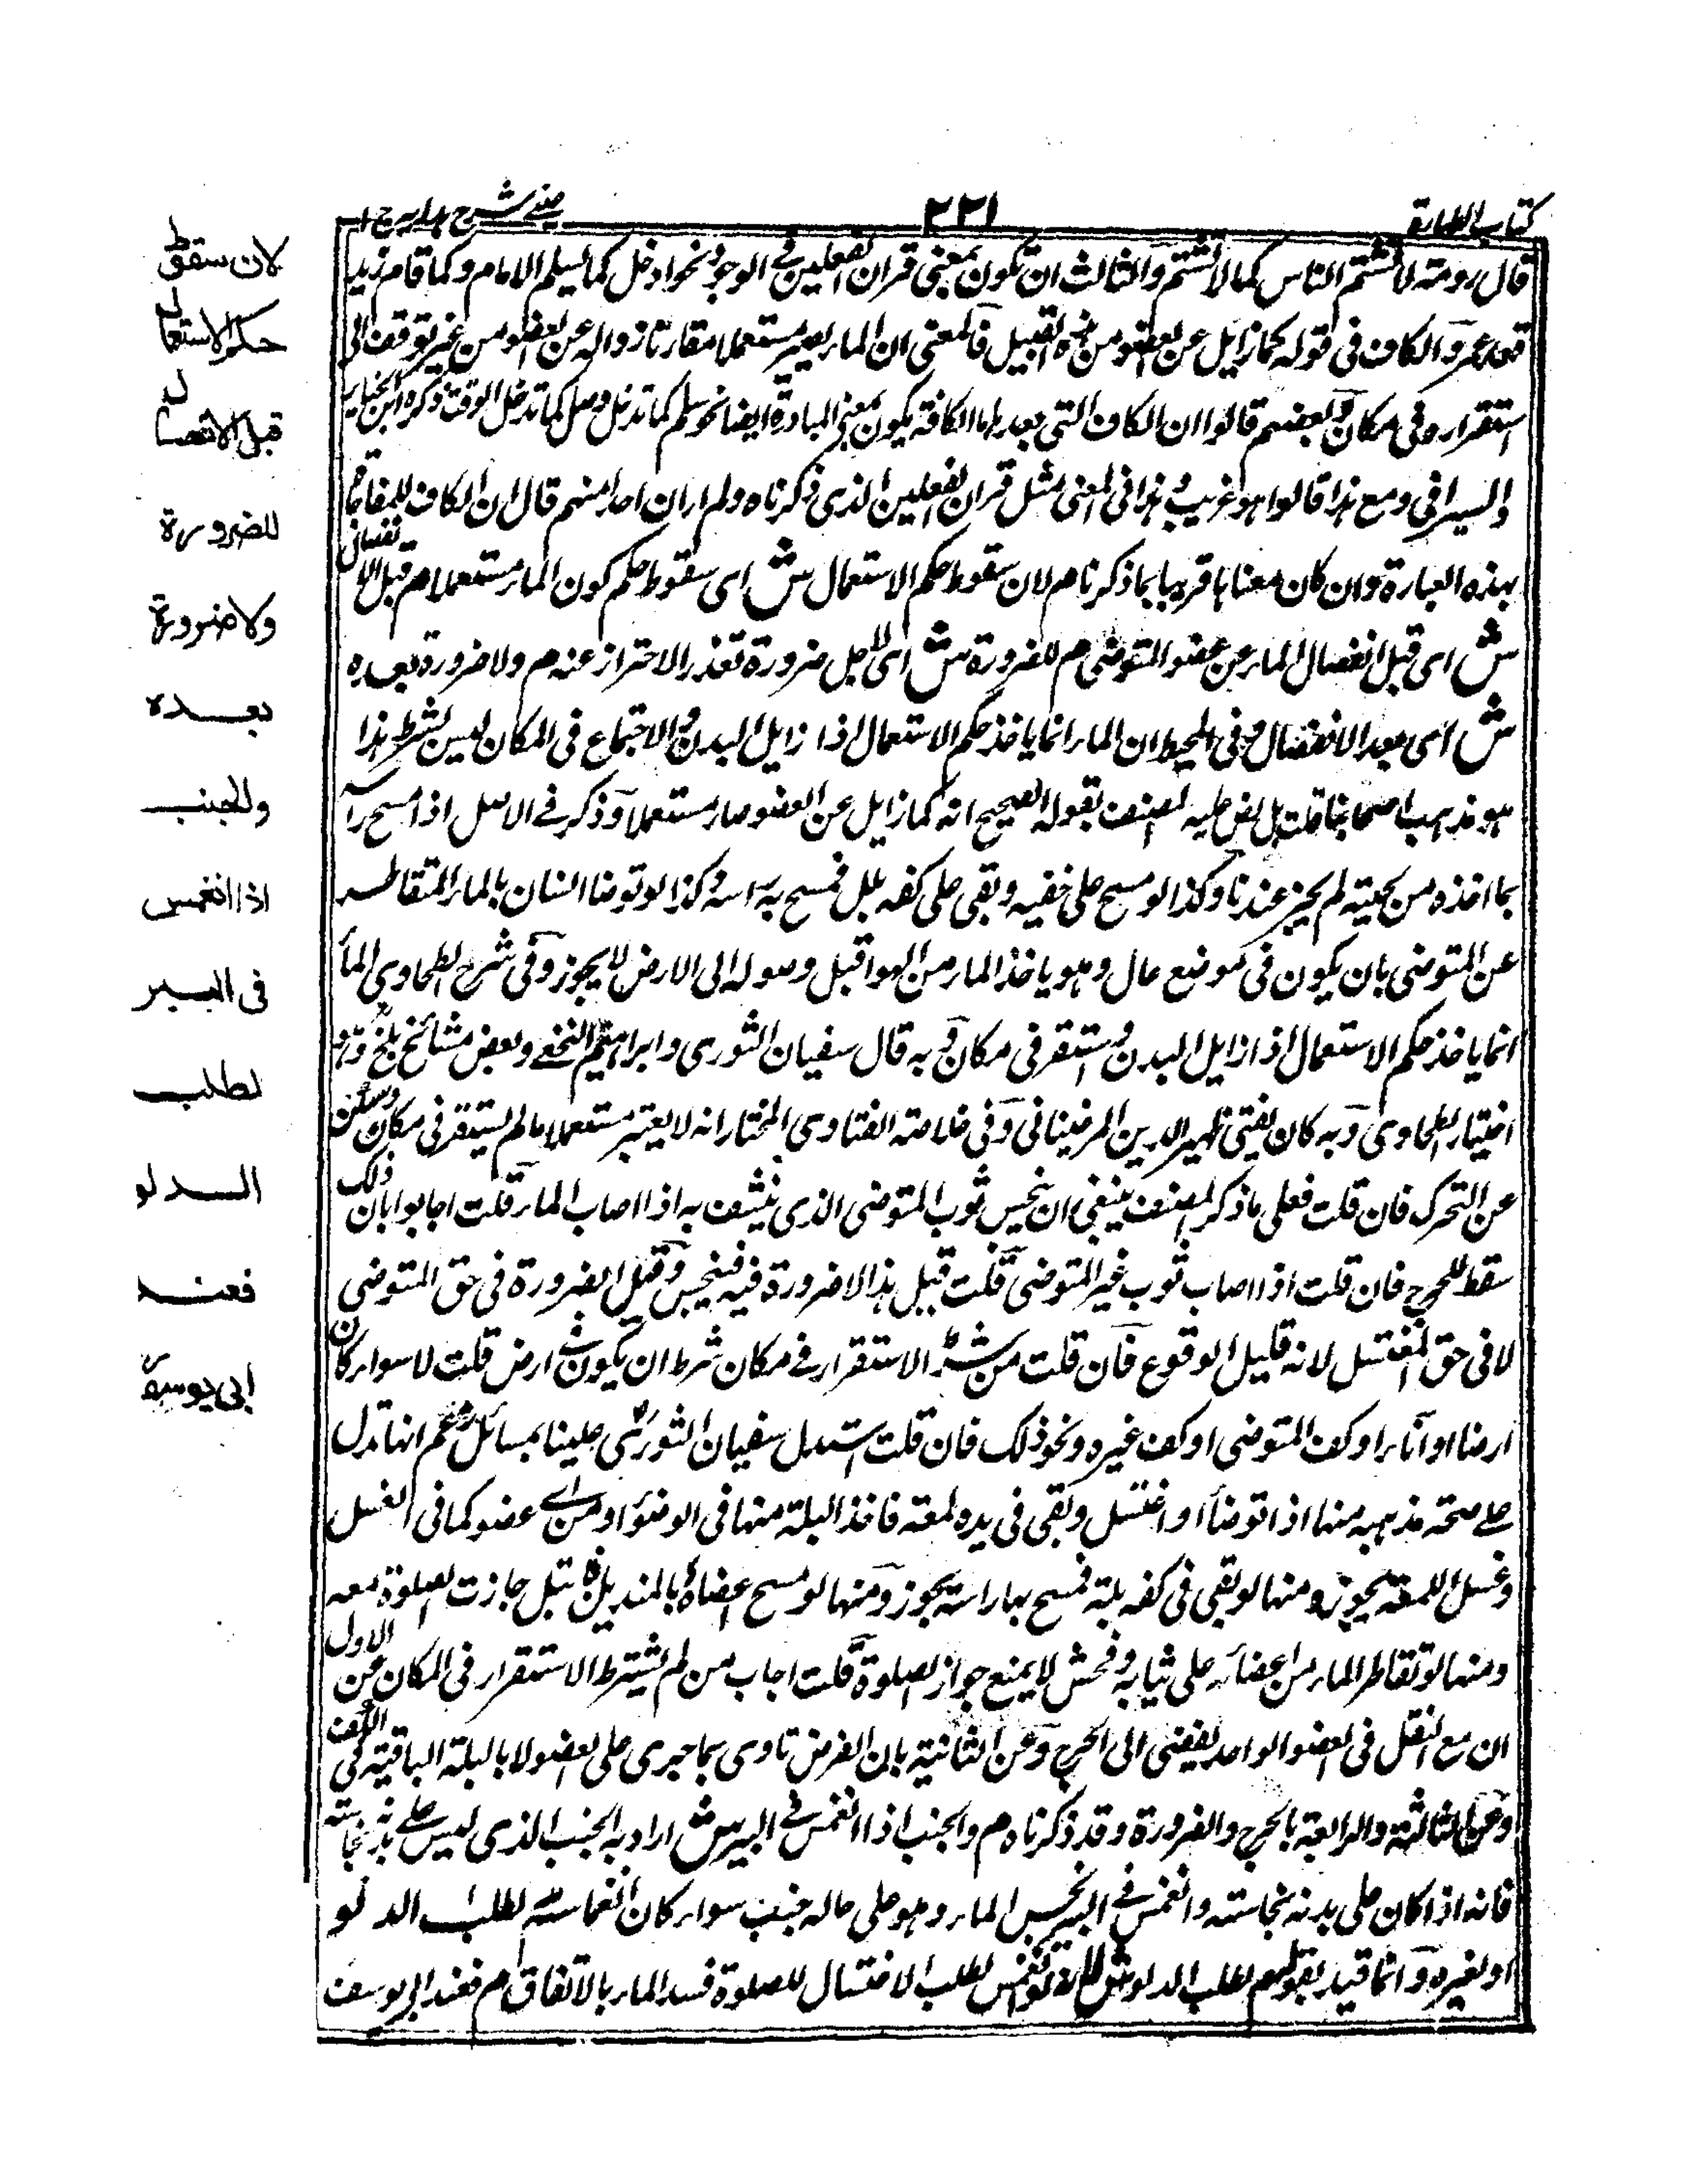 كتاب الطهارة
٢٢١
عينى شرح هدايه ج ١
قال رومة لا تشتم الناس كما لا تشتم والثالث ان تكون بمعنى قران الفعلين فى الوجود نحو ادخل كما يسلم الامام وكما قام زيد
قعد عمرو والكاف فى قوله كما زايل عن العضو من هذا القبيل فالمعنى ان الماء يصير مستعملا مقارنا زواله عن العضو من غير توقف الى
استقراره فى مكان وبعضهم قالوا ان الكاف التى بعدها ما الكافة يكون بمعنى المبادرة ايضا نحو سلم كما تدخل وصل كما تدخل الوقت ذكره ابن الخباز
والسيرافى ومع هذا قالوا هو غريب وهذا فى المعنى مثل قران الفعلين الذى ذكرناه ولم ار ان احدا منهم قال ان الكاف للمفاجاة
بهذه العبارة وان كان معناها قريبا بما ذكرنا م لان سقوط حكم الاستعمال ش اى سقوط حكم كون الماء مستعملا م قبل الانفصال
ش اى قبل انفصال الماء عن عضو المتوضى م للضرورة ش اى لاجل ضرورة تعذر الاحتراز عنه م ولا ضرورة بعده
ش اى بعد الانفصال وفى المحيط ان الماء انما ياخذ حكم الاستعمال اذا زايل البدن والاجتماع فى المكان ليس بشرط هذا
هو مذهب اصحابنا قلت بل نص عليه المصنف بقوله الصحيح انه كما زايل عن العضو صار مستعملا وذكر فى الاصل اذا مسح رأسه
بما اخذه من لحيته لم يجز عندنا وكذا لو مسح على خفيه وبقى على كفه بلل فمسح به راسه وكذا لو توضا انسان بالماء المتقاطر
عن المتوضى بان يكون فى موضع عال وهو ياخذ الماء من الهوا قبل وصوله الى الارض لا يجوز وفى شرح الطحاوى الماء
انما ياخذ حكم الاستعمال اذا زايل البدن واستقر فى مكان وبه قال سفيان الثورى وابراهيم النخعى وبعض مشائخ بلخ وهو
اختيار الطحاوى وبه كان يفتى ظهير الدين المرغينانى وفى خلاصة الفتاوى المختار انه لا يعتبر مستعملا ما لم يستقر فى مكان وسكن
عن التحرك فان قلت فعلى ما ذكر المصنف ينبغى ان ينجس ثوب المتوضى الذى ينشف به اذا اصاب الماء قلت اجابوا بان ذلك
سقط للحرج فان قلت اذا اصاب ثوب غير المتوضى قلت قيل هذا لا ضرورة فيه فينجس وقيل الضرورة فى حق المتوضى
لا فى حق المغتسل لانه قليل الوقوع فان قلت من شرط الاستقرار فى مكان شرط ان يكون فى ارض قلت لا سواء كان
ارضا او آناء او كف المتوضى او كف غيره ونحو ذلك فان قلت استدل سفيان الثورى علينا بمسائل زعم انها تدل
على صحة مذهبه منها اذا توضأ او اغتسل وبقى فى يده لمعة فاخذ البلة منها فى الوضوء او من اى عضو كما فى الغسل
وغسل اللمعة يجوز ومنها لو بقى فى كفه بلة فمسح بها راسه يجوز ومنها لو مسح اعضاءه بالمنديل فابتل جازت الصلوة معه
ومنها لو تقاطر الماء من اعضائه على ثيابه وفحش لا يمنع جواز الصلوة قلت اجاب من لم يشترط الاستقرار فى المكان عن الاول
ان مع النقل فى العضو الواحد يفضى الى الحرج وعن الثانية بان الفرض تادى بما جرى على العضو لا بالبلة الباقية فى الكف
وعن الثالثة والرابعة بالحرج والضرورة وقد ذكرناه م والجنب اذا انغمس فى البير ش اراد به الجنب الذى ليس على بدنه نجاسة
فانه اذا كان على بدنه نجاسته وانغمس فى البير نجس الماء وهو على حاله جنب سواء كان انغماسه لطلب الدلو
او لغيره وانما قيد بقوله م لطلب الدلو ش لانه لو انغمس لطلب الاغتسال للصلوة فسد الماء بالاتفاق م فعند ابى يوسف
لان سقوط
حكم الاستعمال
قبل الانفصال
للضرورة
ولا ضرورة
بعده
والجنب
اذا انغمس
فى البير
لطلب
الدلو
فعند
ابى يوسف